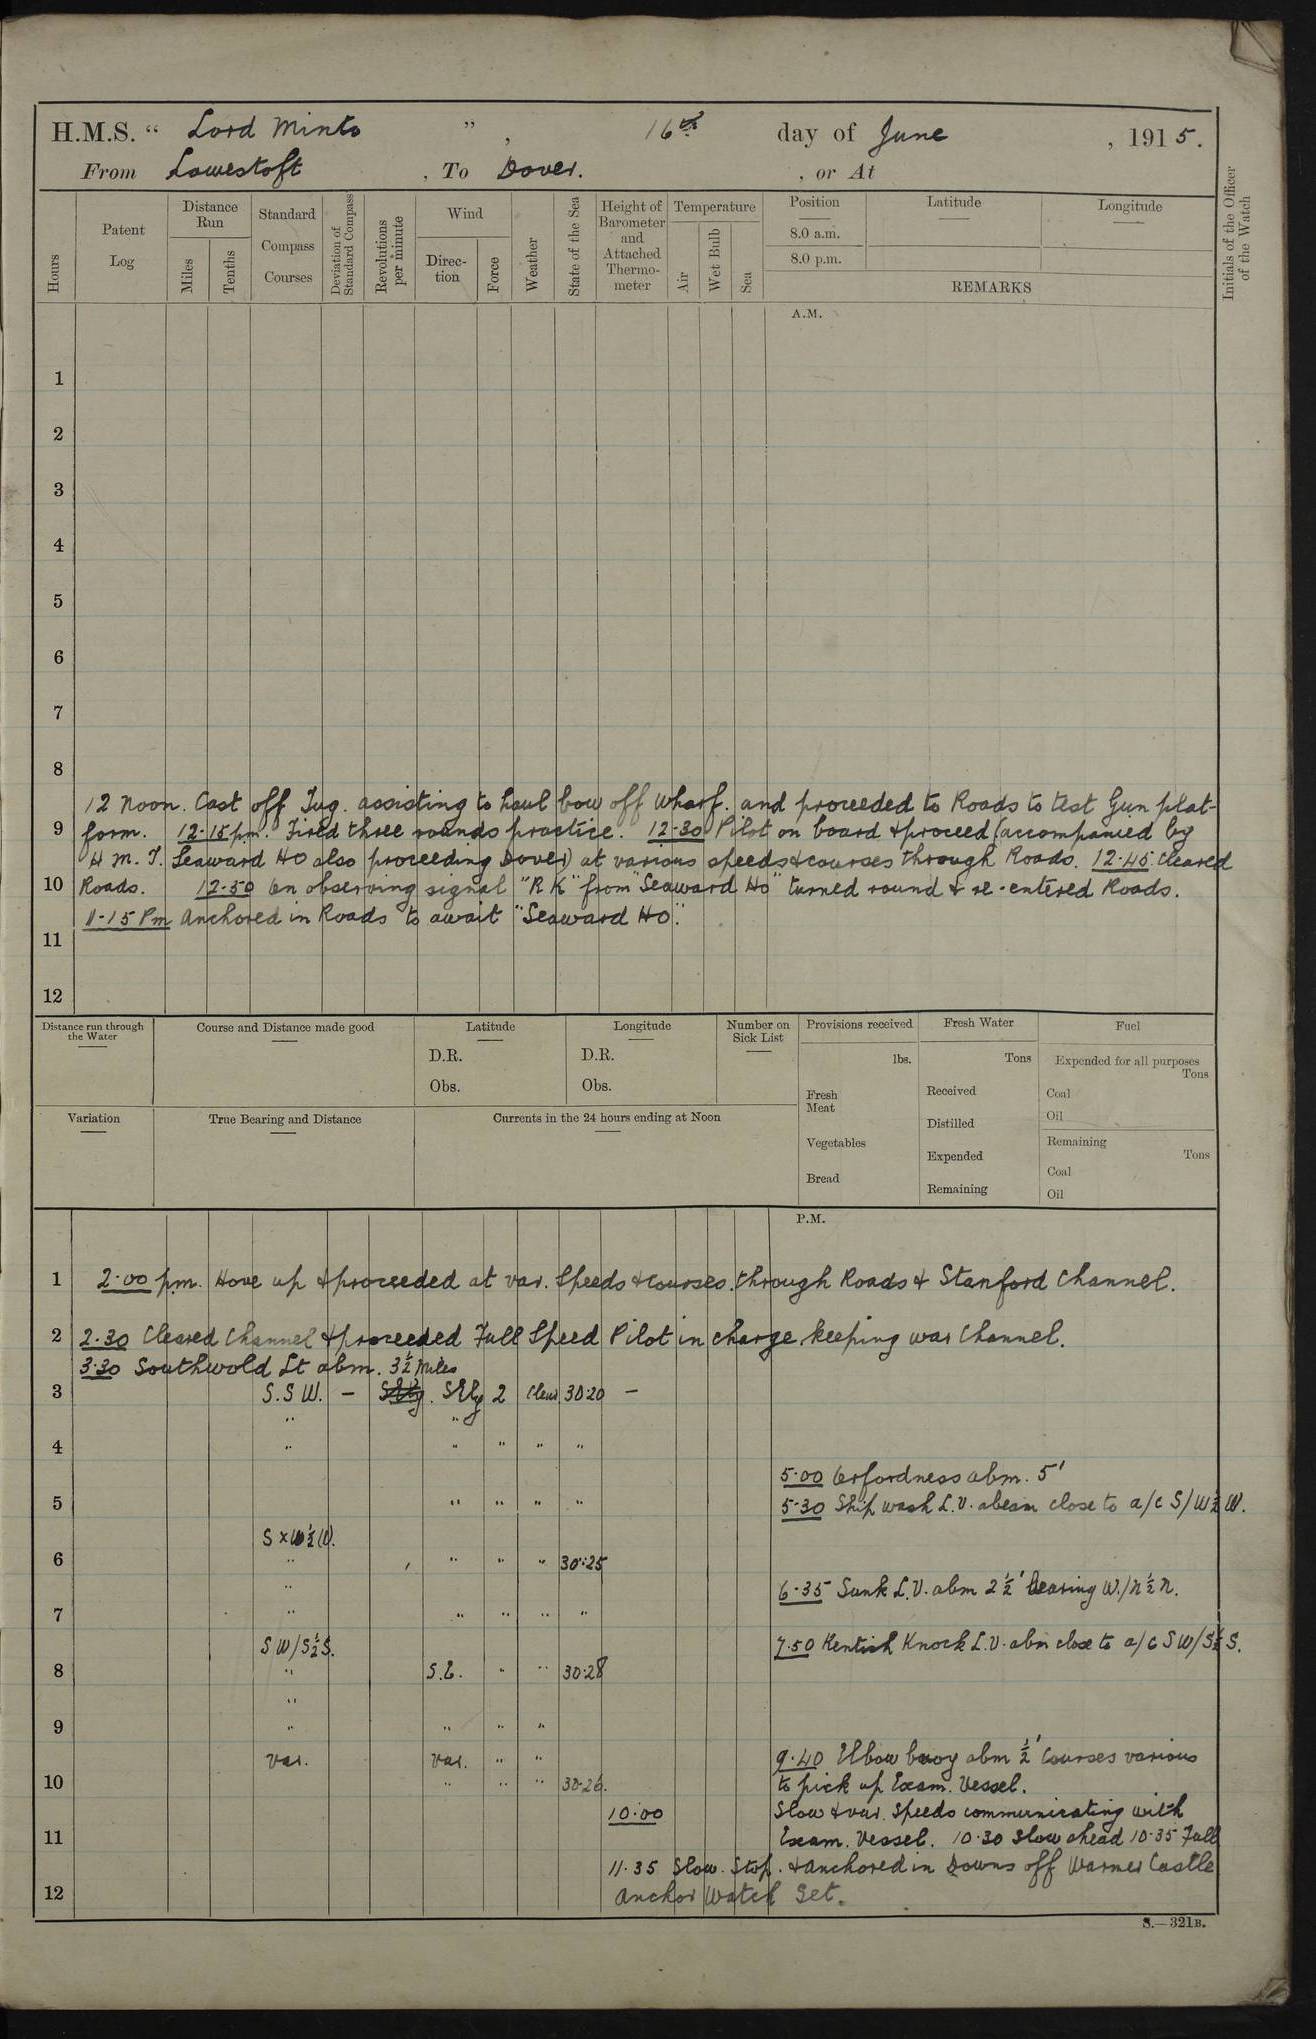 H.M.S. “ Lord Minto ” , 16th day of June , 1915.
From Lowestoft , To Dover. , or At
Hours
Patent Log
Distance Run
Miles
Tenths
Standard Compass Courses
Deviation of Standard Compass
Revolutions per minute
Wind
Direction
Force
Weather
State of the Sea
Height of Barometer and Attached Thermometer
Temperature
Air
Wet Bulb
Sea
Position
8.0 a.m.
8.0 p.m.
Latitude
Longitude
REMARKS
Initials of the Officer of the Watch
A.M.
1
2
3
4
5
6
7
8
12 Noon. Cast off Tug. assisting to haul bow off wharf. and proceeded to Roads to test Gun plat-
9 form. 12.15 pm. Fired three rounds practice. 12-30 Pilot on board & proceed (accompanied by
H.M.T. Seaward Ho also proceeding Dover) at various speeds & courses through Roads. 12.45 Cleared
10 Roads. 12-50 On observing signal "R K" from "Seaward Ho" turned round & re-entered Roads.
1-15 Pm Anchored in Roads to await "Seaward Ho".
11
12
Distance run through the Water
Course and Distance made good
Latitude
D.R.
Obs.
Longitude
D.R.
Obs.
Number on Sick List
Provisions received
lbs.
Fresh Meat
Vegetables
Bread
Fresh Water
Tons
Received
Distilled
Expended
Remaining
Fuel
Expended for all purposes
Tons
Coal
Oil
Remaining
Tons
Coal
Oil
Variation
True Bearing and Distance
Currents in the 24 hours ending at Noon
P.M.
1 2.00 pm. Hove up & proceeded at var. Speeds & courses. through Roads & Stanford Channel.
2 2.30 Cleared Channel & proceeded Full Speed Pilot in charge keeping war Channel.
3.30 Southwold Lt abm. 3½ Miles
3 S.S.W. — SEly 2 Clear 30.20 —
" "
4 " " " " "
5.00 Orfordness abm. 5'
5 " " " " 5-30 Shipwash L.V. abeam close to a/c S/W½W.
S×W½W.
6 " " " " 30.25
" 6-35 Sunk L.V. abm 2½' bearing W./N½N.
7 " " " " "
SW/S½S. 7.50 Kentish Knock L.V. abm close to a/c SW/S½S.
8 " S.E. " " 30.28
"
9 " " " "
var. var. " " 9.40 Elbow buoy abm ½' Courses various
10 " " " 30.26. to pick up Exam. Vessel.
10.00 Slow & var. Speeds communicating with
11 Exam. Vessel. 10.30 Slow ahead 10.35 Full
11.35 Slow. Stop. & anchored in Downs off Warmer Castle
12 Anchor Watch Set.
S.—321B.